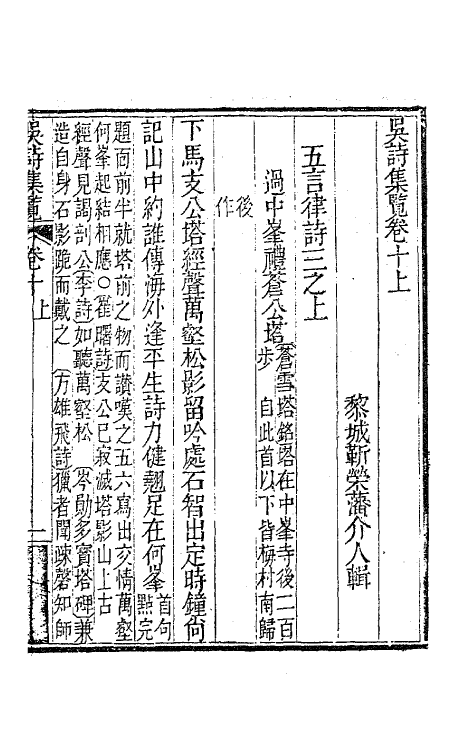 吳詩集覽卷十上
黎城靳榮藩介人輯
五言律詩三之上
過中峯禮蒼公塔蒼雪塔銘塔在中峯寺後二百
步 自此首以下皆梅村南歸
後
作
下馬支公塔經聲萬壑松影留吟處石智出定時鐘尙
記山中約誰傳海外逢平生詩力健翹足在何峯首句
點完
題面前半就塔前之物而讚嘆之五六寫出交情萬壑
何峯起結相應○崔曙詩支公已寂滅塔影山上古
經聲見謁剖公李詩如聽萬壑松 岑勛多寶塔碑兼
造自身石影跪而戴之 方雄飛詩獵者聞疎磬知師
吳詩集覽 卷十上 一